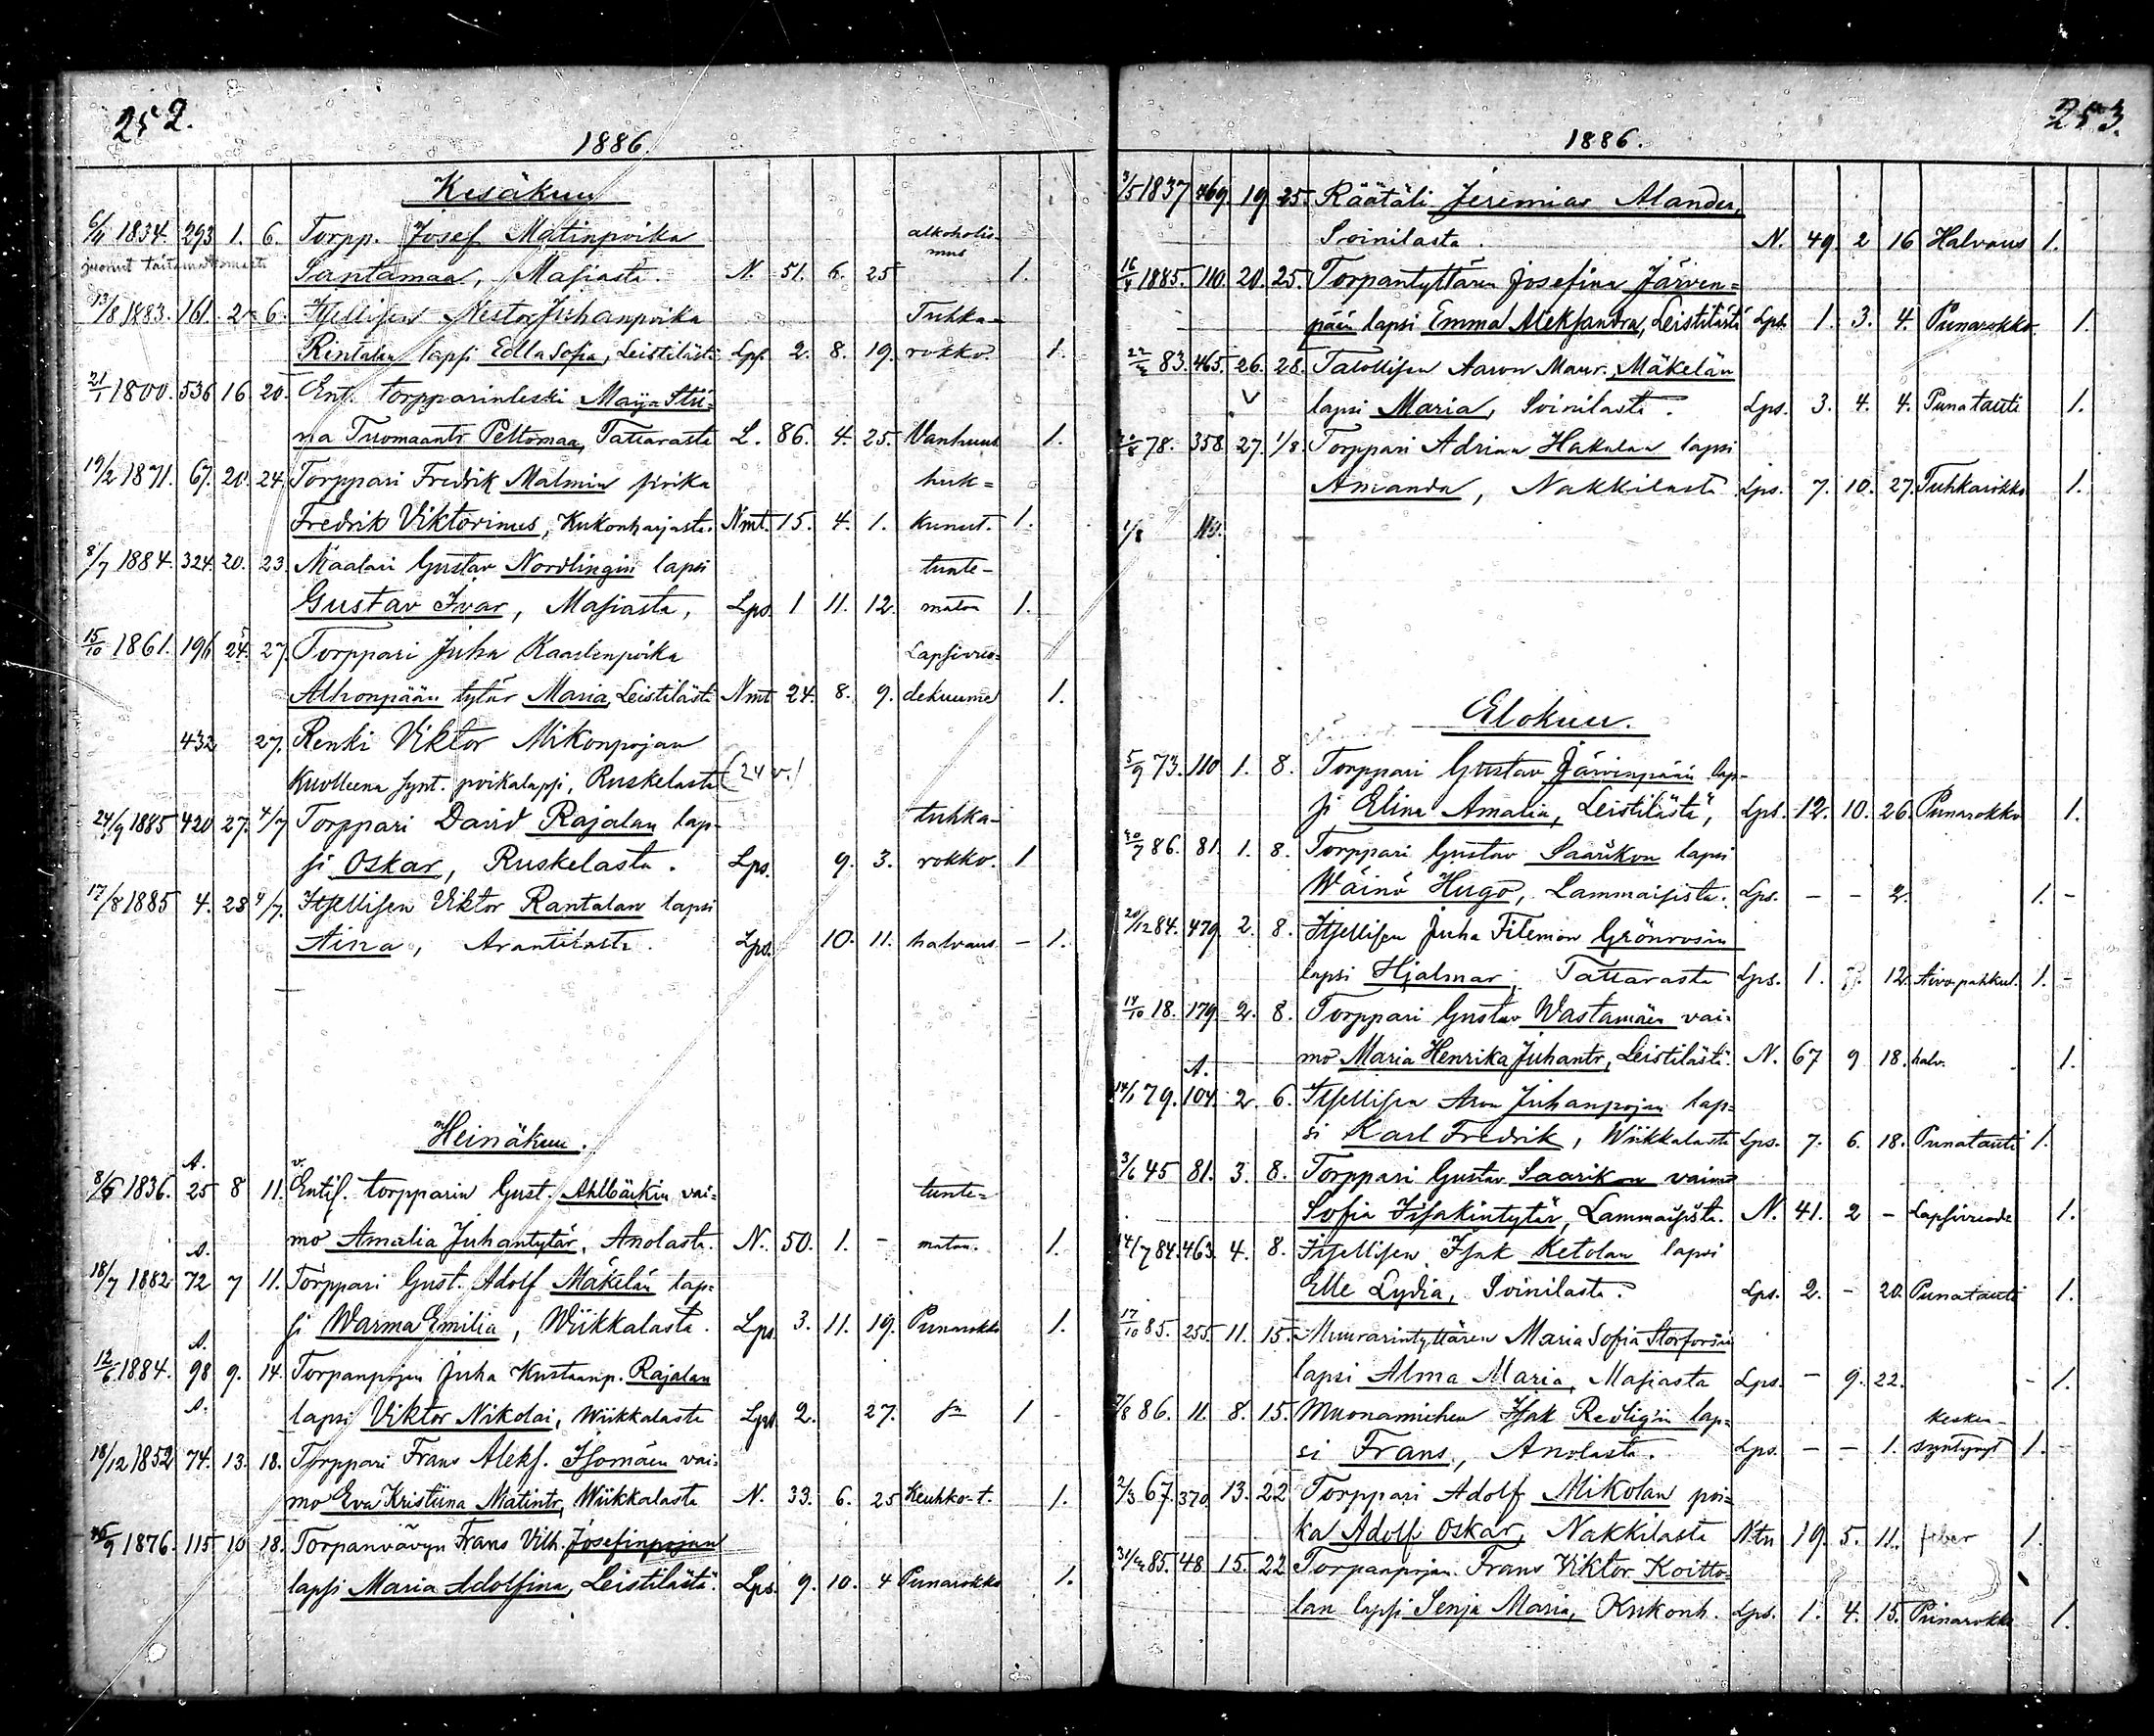 252.
1886.
Kesäkuu
6/4 1834. 293 1. 6. Torpp. Josef Matinpoika alkoholis-
mus
juonut taitamattomasti Santamaa, Masiasta. N. 51. 6. 25 1.
13/8 1883. 161. 2 6. Itsellisen Nestor Juhanpoika Tuhka-
Rintalan lapsi Edla Sofia, Leistilästä Lps. 2. 8. 19. rokko. 1.
21/1 1800. 536 16 20. Ent. torpparinleski Maija Stii-
na Tuomaantr Peltomaa, Tattarasta L. 86. 4. 25. Vanhuus 1.
19/2 1871. 67. 20. 24. Torppari Fredrik Malmin poika huk=
Fredrik Viktorinus, Kukonharjasta. Nmt. 15. 4. 1. kunut. 1.
8/7 1884. 324. 20. 23. Maalari Gustav Nordlingin lapsi tunte-
Gustav Ivar, Masiasta, Lps. 1 11. 12. maton 1.
15/10 1861. 196 24. 27. Torppari Juha Kaarlenpoika Lapsivuo-
Alhonpään tytär Maria, Leistilästä Nmt 24. 8. 9. dekuume 1.
432 27. Renki Viktor Mikonpojan
Kuolleena synt. poikalapsi, Ruskelasta (24 v.)
24/9 1885 420 27. 4/7 Torppari David Rajalan lap- tuhka-
si Oskar, Ruskelasta. Lps. 9. 3. rokko. 1
17/8 1885 4. 28 4/7. Itsellisen Viktor Rantalan lapsi
Aina, Arantilasta. Lps. 10. 11. halvaus - 1.
Heinäkuu.
A. v.
8/5 1836. 25 8 11. Entis. torpparin Gust. Ahlbäckin vai- tunte=
mo Amalia Juhantytär, Anolasta. N. 50. 1. - maton. 1.
A.
18/7 1882 72 7 11. Torppari Gust. Adolf Mäkelän lap-
si Warma Emilia, Wiikkalasta. Lps 3. 11. 19. Punarokko 1.
A.
12/6 1884. 98 9. 14. Torpanpojan Juha Kustaanp. Rajalan
A. lapsi Viktor Nikolai, Wiikkalasta Lps 2. 27. 1 -
18/12 1852 74. 13. 18. Torppari Frans Aleks. Isomäen vai-
mo Eva Kristiina Matintr, Wiikkalasta N. 33. 6. 25 Keuhko-t. 1.
1876. 115 10 18. Torpanvävyn Frans Vilh. Josefinpojan
lapsi Maria Adolfina, Leistilästä. Lps. 9. 10. 4 Punarokko 1.
253.
1886.
3/5 1837 469. 19. 25. Räätäli Jeremias Alander,
Soinilasta. N. 49. 2 16 Halvaus 1.
16/4 1885. 110. 20. 25. Torpantyttären Josefina Järven=
pään lapsi Emma Aleksandra, Leistilästä Lps. 1. 3. 4. Punarokko. 1.
83. 465. 26. 28. Talollisen Aaron Maur. Mäkelän
v lapsi Maria, Soinilasta. Lps. 3. 4. 4. Punatauti 1.
78. 358 27. 1/8. Torppari Adrian Hakalan lapsi
Amanda, Nakkilasta Lps. 7. 10. 27. Tuhkarokko 1.
1/8
Elokuu.
5/9 73. 110 1. 8. Torppari Gustav Järvenpään lap-
si Elina Amalia, Leistilästä, Lps. 12. 10. 26. Punarokko 1.
30/7 86. 81. 1. 8. Torppari Gustav Saarikon lapsi
Wäinö Hugo, Lammaisista. Lps. - - 2. 1. -
20/12 84. 479. 2. 8. Itsellisen Juha Filemon Grönroosin
lapsi Hjalmar, Tattarasta Lps. 1. 7. 12. Aivopahkul. 1. -
14/10 18. 179. 2. 8. Torppari Gustav Wastamäen vai-
mo Maria Henrika Juhantr, Leistilästä. N. 67 9 18. halv. 1.
A.
14/1 79. 104. 2. 6. Itsellisen Aron Juhanpojan lap=
si Karl Fredrik, Wiikkalasta Lps. 7. 6. 18. Punatauti 1.
3/6 45 81. 3. 8. Torppari Gustav Saarikon vaimo
Sofia Iisakintytär, Lammaisista. N. 41. 2 - Lapsivuode 1.
14/7 84. 463. 4. 8. Itsellisen Isak Ketolan lapsi
Elle Lydia, Soinilasta. Lps. 2. - 20. Punatauti 1.
17/10 85. 255. 11. 15. Muurarintyttären Maria Sofia Storforsin
lapsi Alma Maria, Masiasta Lps. - 9. 22. - 1.
7/8 86. 11. 8. 15. Muonamiehen Isak Redligin lap= kesken-
si Frans, Anolasta. Lps. - - 1. syntynyt 1. -
2/3 67. 370 13. 22 Torppari Adolf Mikolan poi=
ka Adolf Oskar, Nakkilasta Ntn 19. 5. 11. feber 1.
85. 48 15. 22 Torpanpojan Frans Viktor Koitto=
lan lapsi Senja Maria, Kukonh. Lps. 1. 4. 15. Punarokko 1.